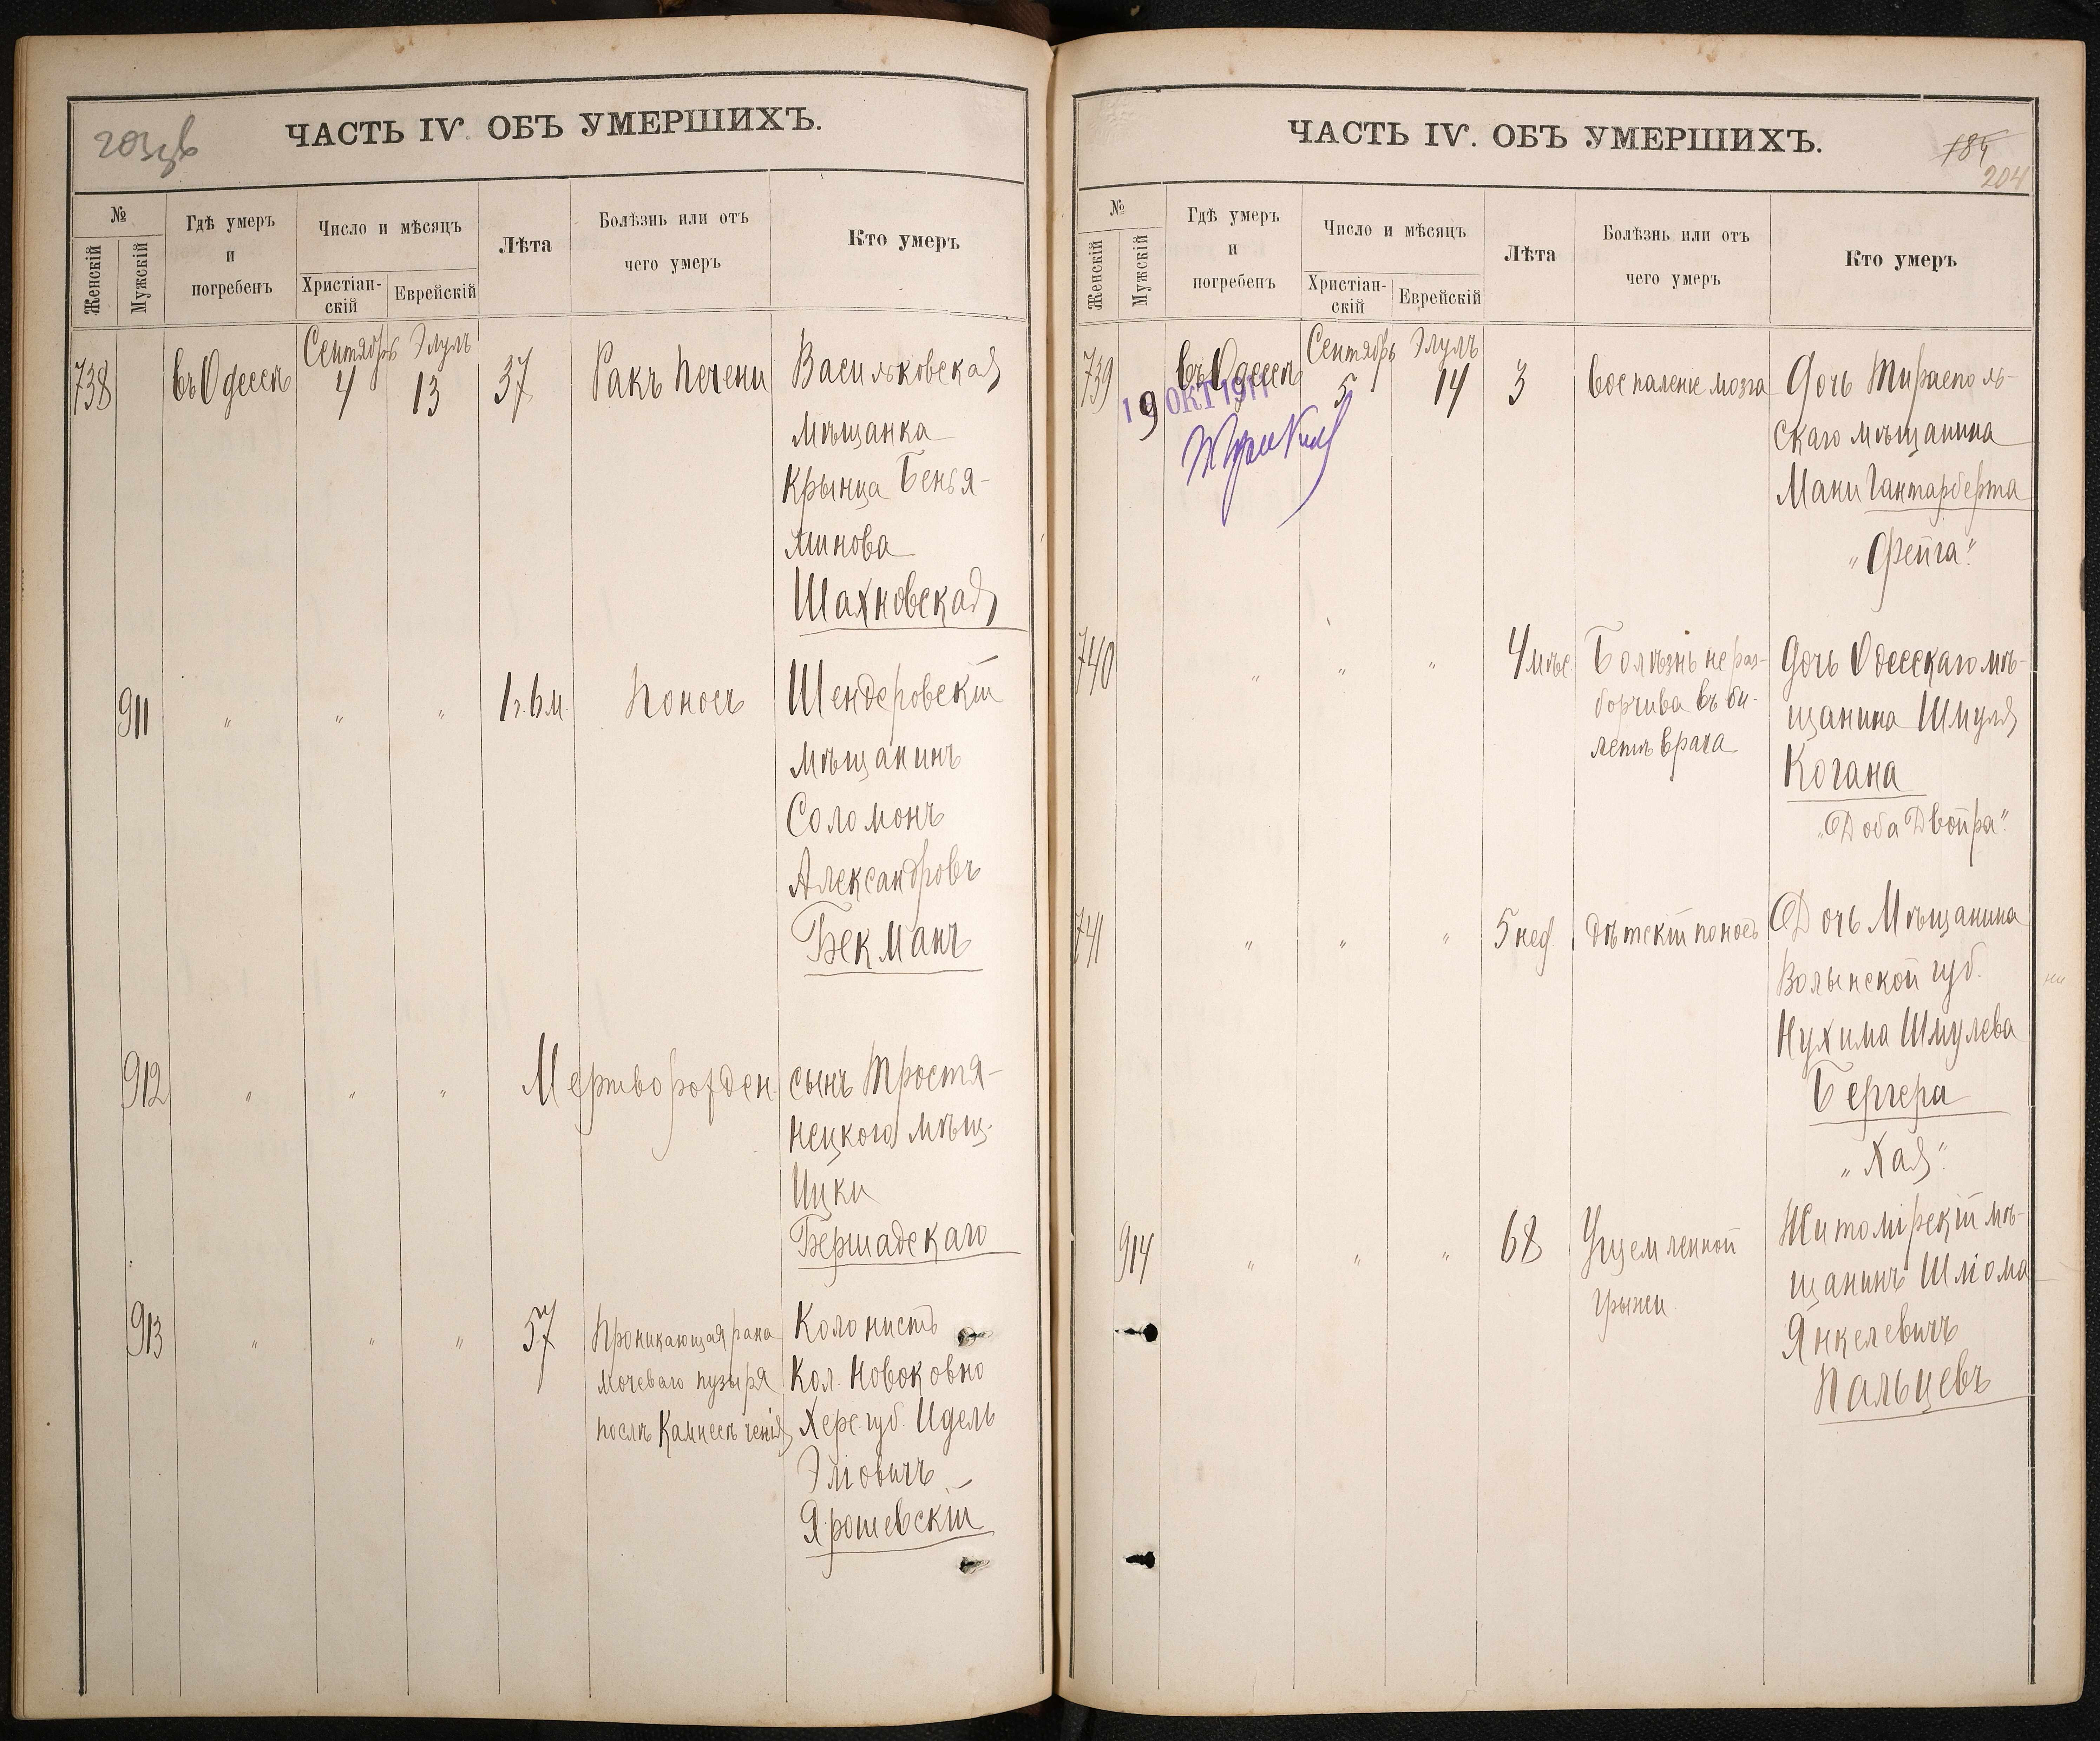 203 об
ЧАСТЬ IV. ОБЪ УМЕРШИХЪ.
№
Женскій
Мужскій
Гдѣ умеръ
и
погребенъ
Число и мѣсяцъ
Христіан-
скій
Еврейскій
Лѣта
Болѣзнь или отъ
чего умеръ
Кто умеръ
Сентябрь Элулъ
738 въ Одессѣ 4 13 37 Ракъ печени Васильковская
мѣщанка
Крынца Бенья-
минова
Шахновская
911 " " " 1 г. 6 м. Поносъ Шендеровскій
мѣщанинъ
Соломонъ
Александровъ
Бекманъ
912 " " " Мертворожден. сынъ Тростя-
нецкого мѣщ.
Ицки
Бершадскаго
913 " " " 57 Проникающая рана Колонистъ
мочеваго пузыря Кол. Новоковно
послѣ камнесѣченія Херс. губ. Идель
Эліовичъ
Ярошевскій
ЧАСТЬ IV. ОБЪ УМЕРШИХЪ.
204
№
Женскій
Мужскій
Гдѣ умеръ
и
погребенъ
Число и мѣсяцъ
Христіан-
скій
Еврейскій
Лѣта
Болѣзнь или отъ
чего умеръ
Кто умеръ
Сентябрь Элулъ
739 въ Одессѣ 5 14 3 Воспаленіе мозга Дочь Тирасполь-
19 ОКТ 1911
скаго мѣщанина
Мани Гантарберта
"Фейга"
740 " " " 4 мѣс. Болѣзнь нераз- Дочь Одесскаго мѣ-
борчива въ би- щанина Шмуля
летѣ врача Когана
"Доба Двойра"
741 " " " 5 нед. Дѣтскій поносъ Дочь Мѣщанина
Волынской губ.
Нухима Шмулева
Бергера
"Хая"
914 " " " 68 Ущемленной Житомірскій мѣ-
грыжи щанинъ Шліома
Янкелевичъ
Пальцевъ